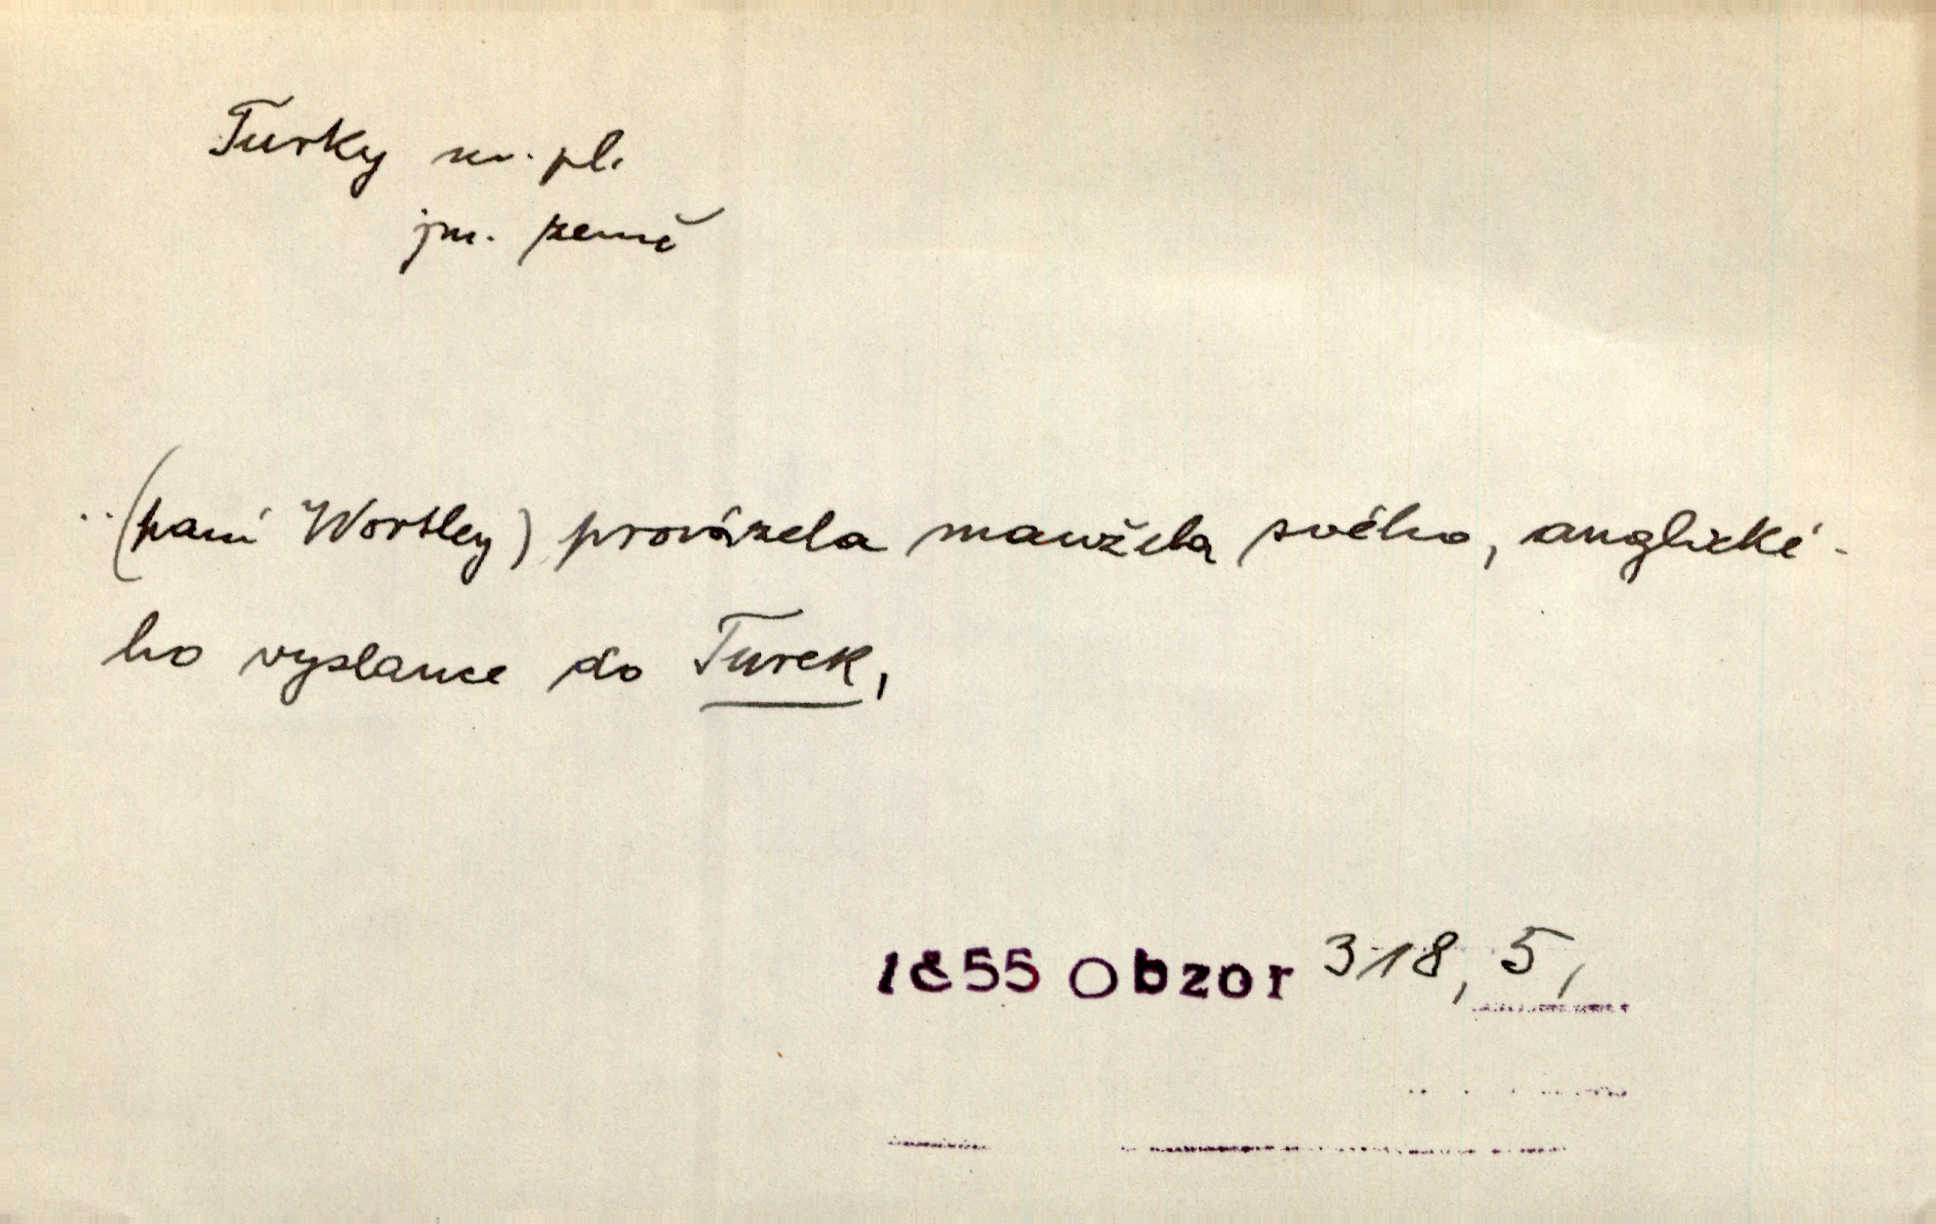 Turky m. pl.
jm. země
..(paní Wortley) provázela manžela svého, anglické-
ho vyslance do Turek,
1855 Obzor 318, 5,